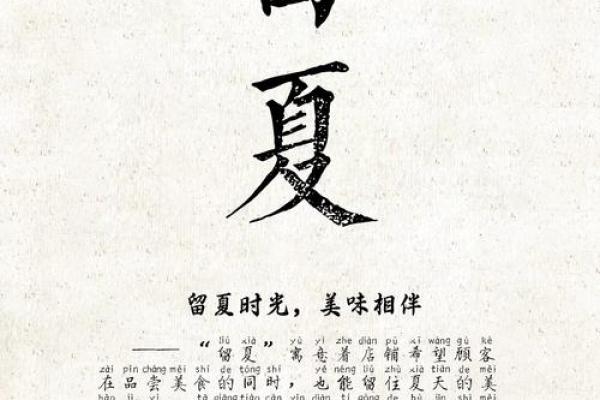 夏
留夏时光，美味相伴
liú xià yù yì zhe diàn pū xī wàng gù kè
——“留夏”寓意着店铺希望顾客
zài pǐn cháng měi shí de tóng shí yě néng liú zhù xià tiān de měi
在品尝美食的同时，也能留住夏天的美